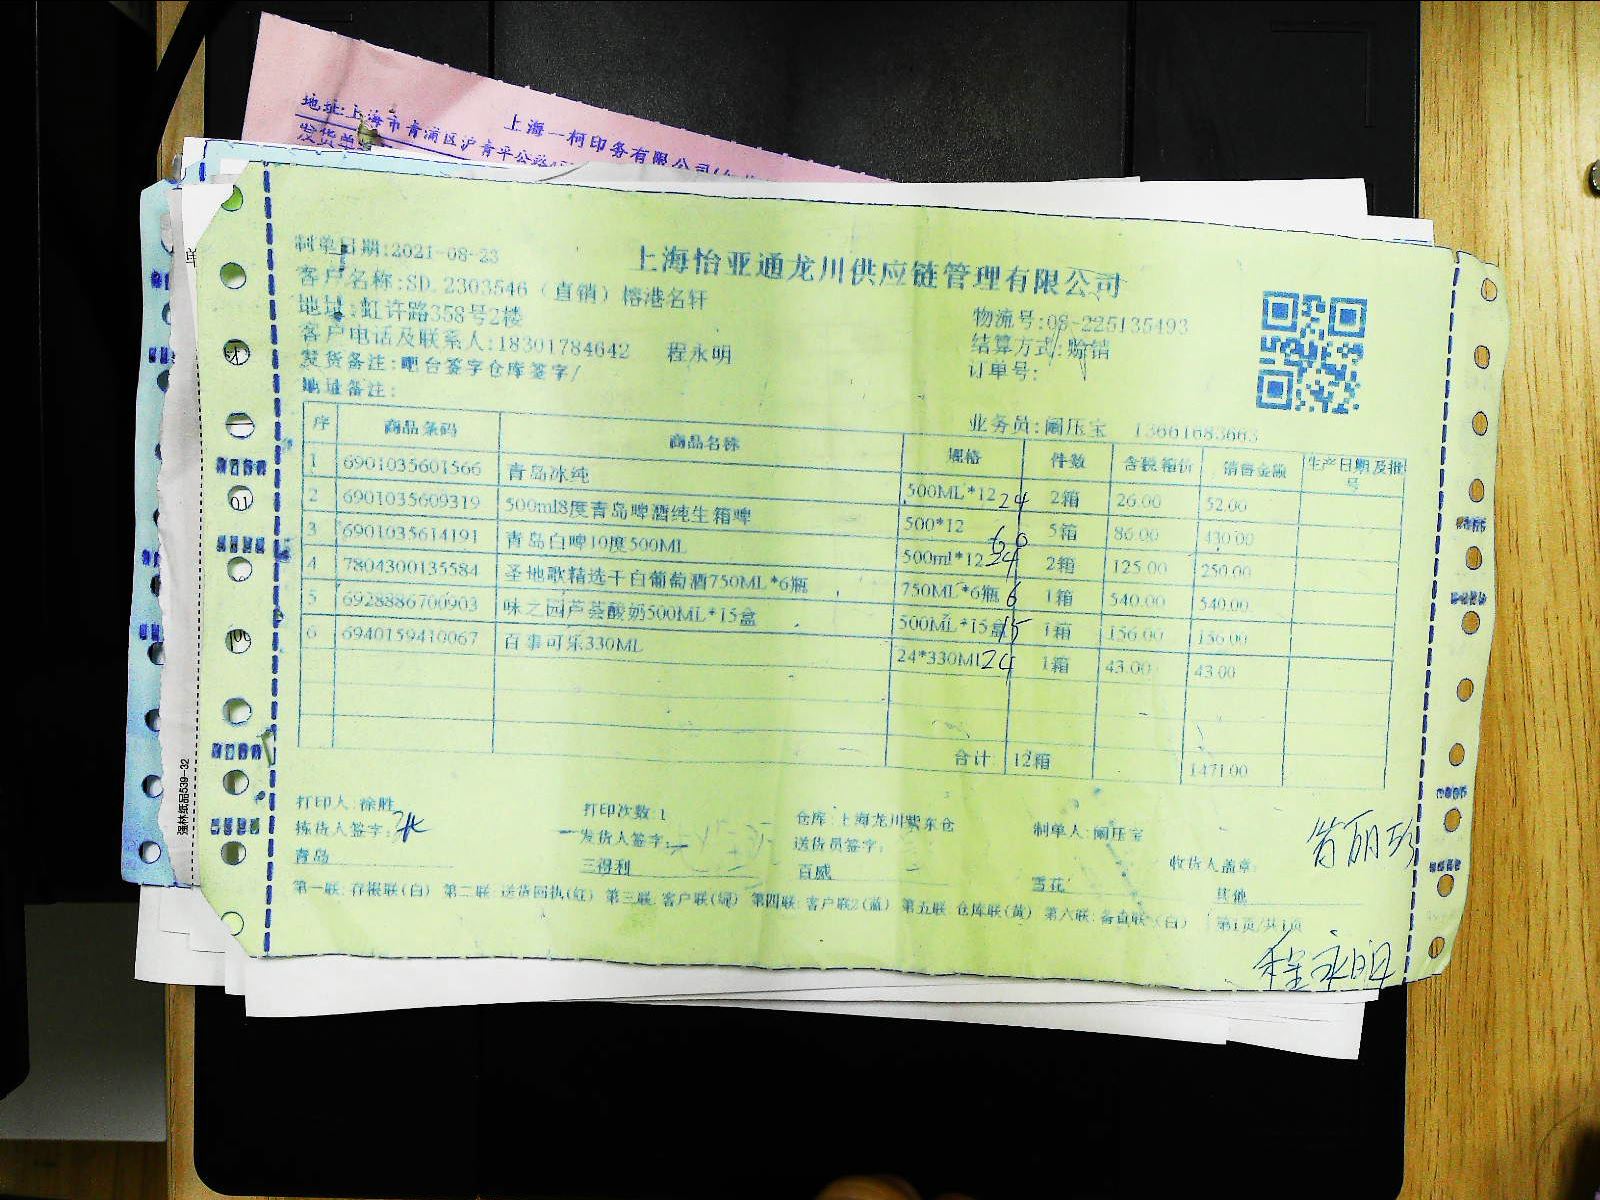 上海一柯印务有限公司
地址:上海市青浦区沪青平公路
发货单
制单日期:2021-08-23
上海怡亚通龙川供应链管理有限公司
客户名称:SD.2303546（直销）榕港名轩
地址:虹许路358号2楼
物流号:08-225135493
客户电话及联系人:18301784642 程永明
结算方式:赊销
发货备注:吧台签字仓库签字/
订单号:
地址备注:
业务员:阚压宝 13661683663
序 商品条码 商品名称 规格 件数 含税箱价 销售金额 生产日期及批号
1 6901035601566 青岛冰纯 500ML*12 24 2箱 26.00 52.00
2 6901035609319 500ml8度青岛啤酒纯生箱啤 500*12 60 5箱 86.00 430.00
3 6901035614191 青岛白啤10度500ML 500ml*12 24 2箱 125.00 250.00
4 7804300135584 圣地歌精选干白葡萄酒750ML*6瓶 750ML*6瓶 6 1箱 540.00 540.00
5 6928886700903 味之园芦荟酸奶500ML*15盒 500ML*15盒 15 1箱 156.00 156.00
6 6940159410067 百事可乐330ML 24*330ML 24 1箱 43.00 43.00
合计: 12箱 1471.00
打印人:徐胜 打印次数:1 仓库:上海龙川紫东仓 制单人:阚压宝
拣货人签字: 发货人签字: 送货员签字: 收货人盖章:
青岛 三得利 百威 雪花 其他
第一联:存根联(白) 第二联:送货回执(红) 第三联:客户联(绿) 第四联:客户联2(蓝) 第五联:仓库联(黄) 第六联:备查联(白) 第1页/共1页
程永明
强林纸品539-32